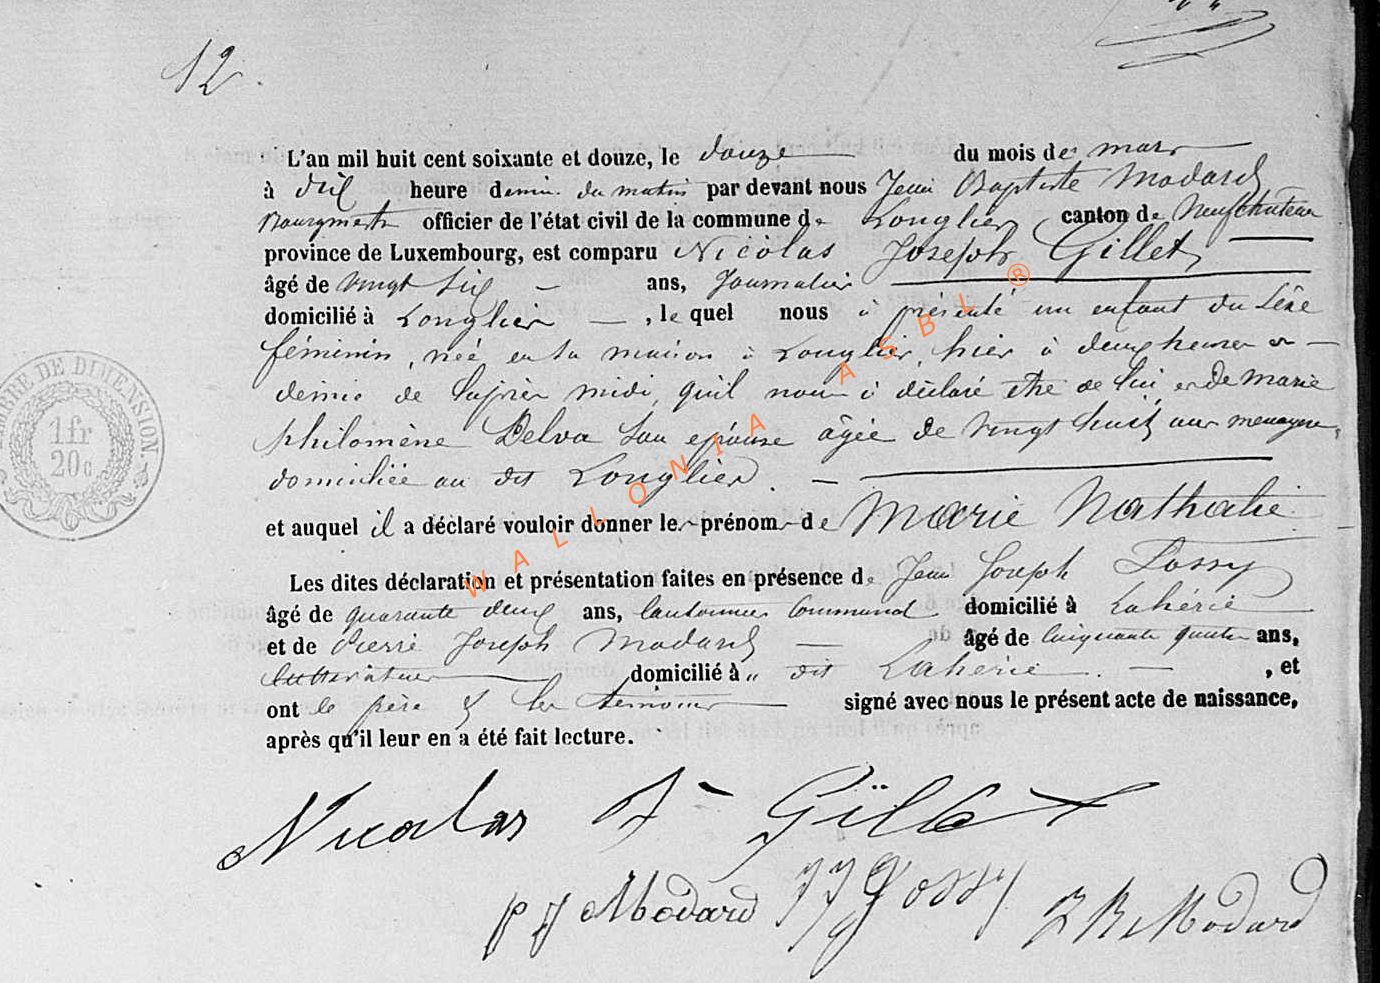 12.
L'an mil huit cent soixante et douze, le douze du mois de mars
à dix heure demie du matin par devant nous Jean Baptiste Modard
Bourgmestre officier de l'état civil de la commune de Longlier canton de Neufchateau
province de Luxembourg, est comparu Nicolas Joseph Gillet
âgé de vingt six ans, Journalier
domicilié à Longlier, le quel nous à présenté un enfant du sexe
féminin, née en sa maison à Longlier, hier à deux heures et
demie de l'après midi, qu'il nous à déclaré être de lui et de marie
philomène Belva son épouse âgée de vingt huit ans menagere,
domiciliée au dit Longlier.
et auquel il a déclaré vouloir donner les prénoms de Marie Nathalie
Les dites déclaration et présentation faites en présence de Jean Joseph
âgé de quarante deux ans, Cantonnier Communal domicilié à Lahérie
et de Pierre Joseph Modard âgé de Cinquante quatre ans,
Cultivateur domicilié à dit Lahérie, et
ont le père et les témoins signé avec nous le présent acte de naissance,
après qu'il leur en a été fait lecture.
Nicolas J Gillet
p J Modard JJ JB Modard
TIMBRE DE DIMENSION
1 fr
20 c
WALLONIA ASBL ®